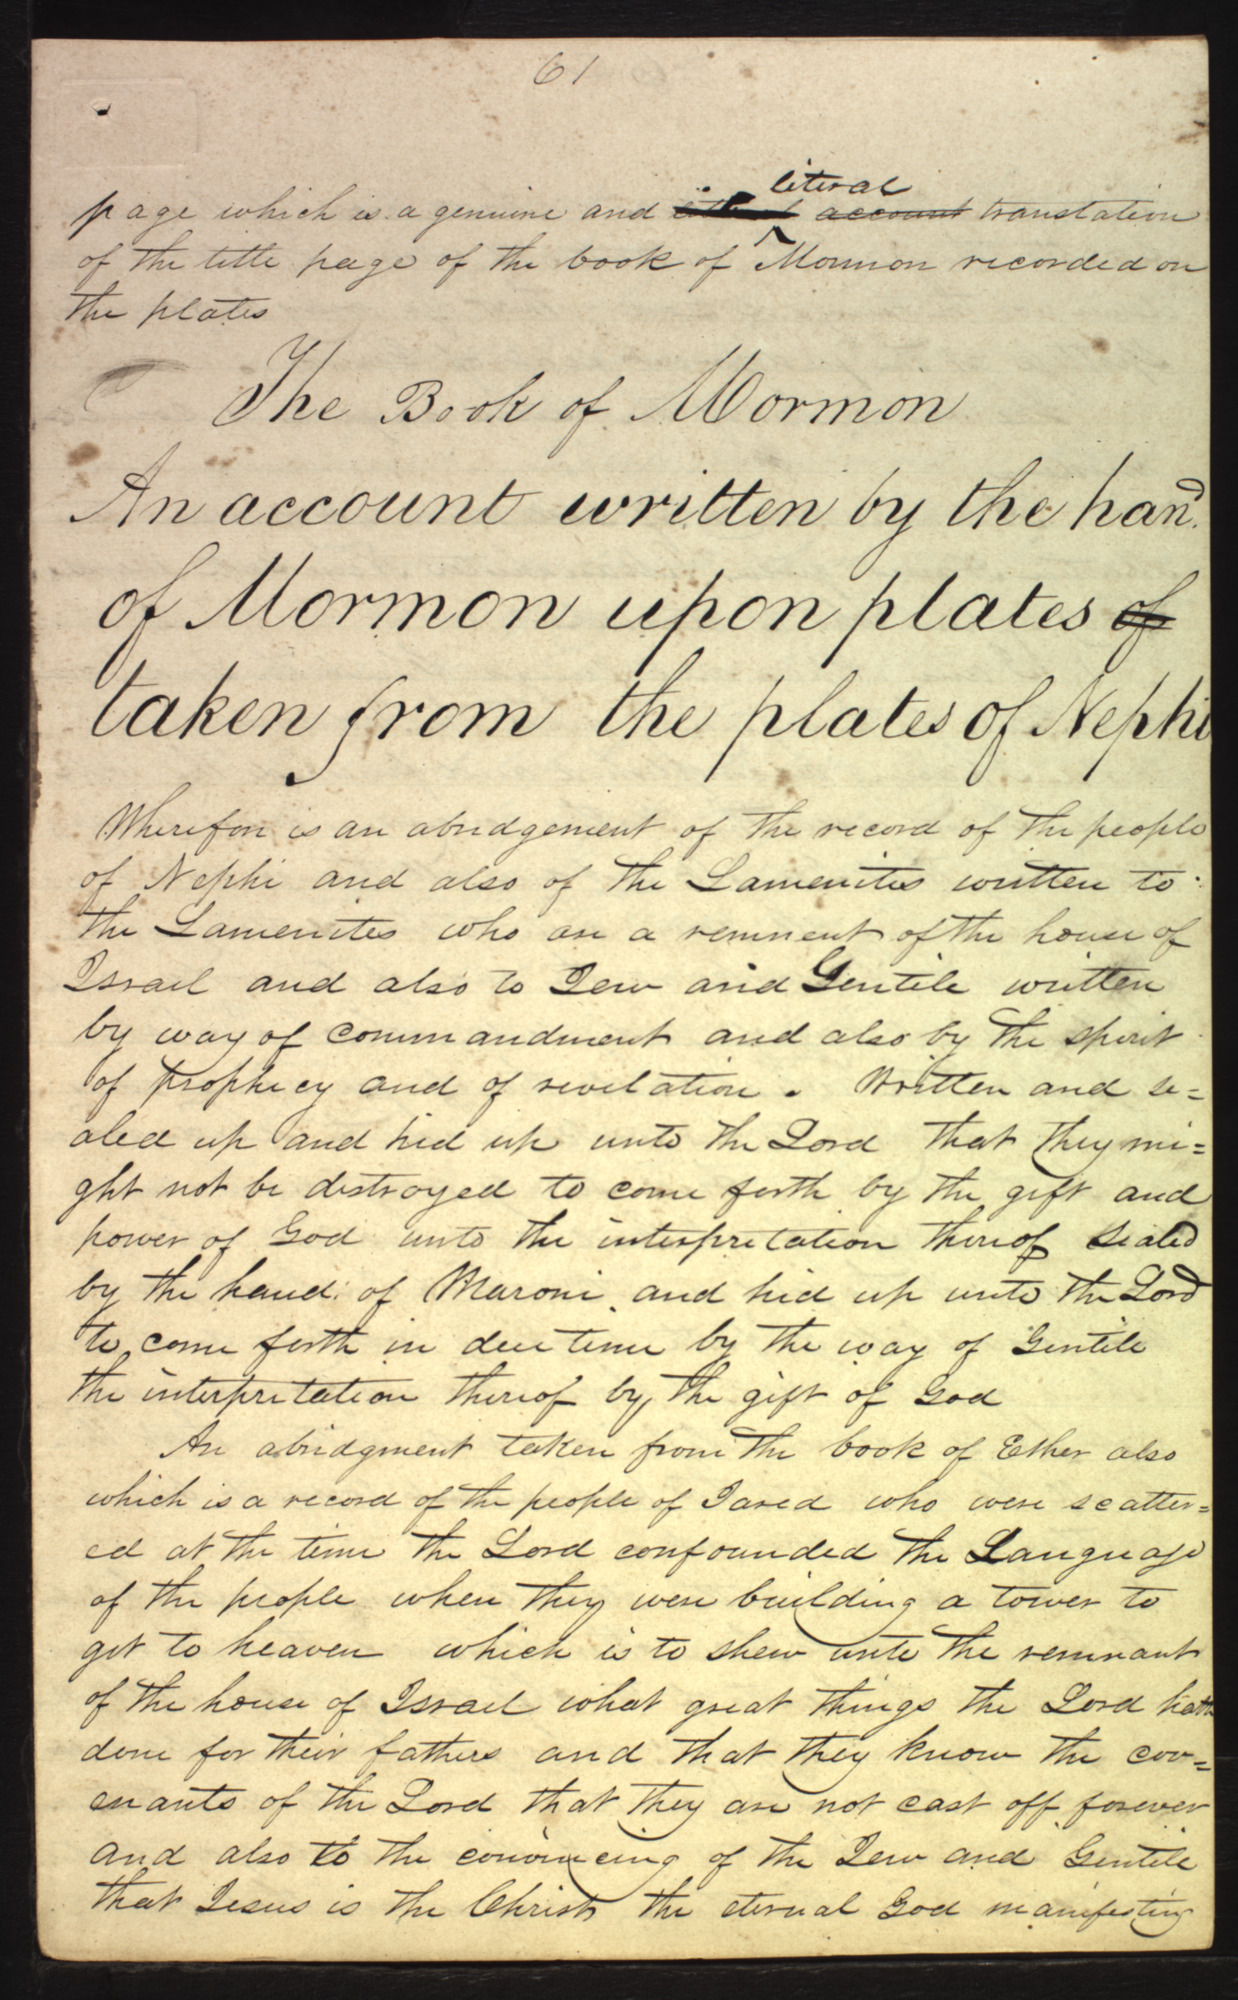 61
literal
page which is a genuine and account translation
of the title page of the book of Mormon recorded on
the plates
The Book of Mormon
An account written by the hand
of Mormon upon plates of
taken from the plates of Nephi
Wherefore is an abridgement of the record of the people
of Nephi and also of the Lamenites written to
the Lamenites who are a remnent of the house of
Israel and also to Jew and Gentile written
by way of commandment and also by the spirit
of prophecy and of revelation. Written and se=
aled up and hid up unto the Lord that they mi=
ght not be destroyed to come forth by the gift and
power of God unto the interpretation thereof sealed
by the hand of Maroni and hid up unto the Lord
to come forth in due time by the way of Gentile
the interpretation thereof by the gift of God
An abridgment taken from the book of Ether also
which is a record of the people of Jared who were scatter=
ed at the time the Lord confounded the Language
of the people when they were building a tower to
get to heaven which is to shew unto the remnant
of the house of Israel what great things the Lord hath
done for their fathers and that they know the cov=
enants of the Lord that they are not cast off forever
and also to the convincing of the Jew and Gentile
that Jesus is the Christ the eternal God manifesting